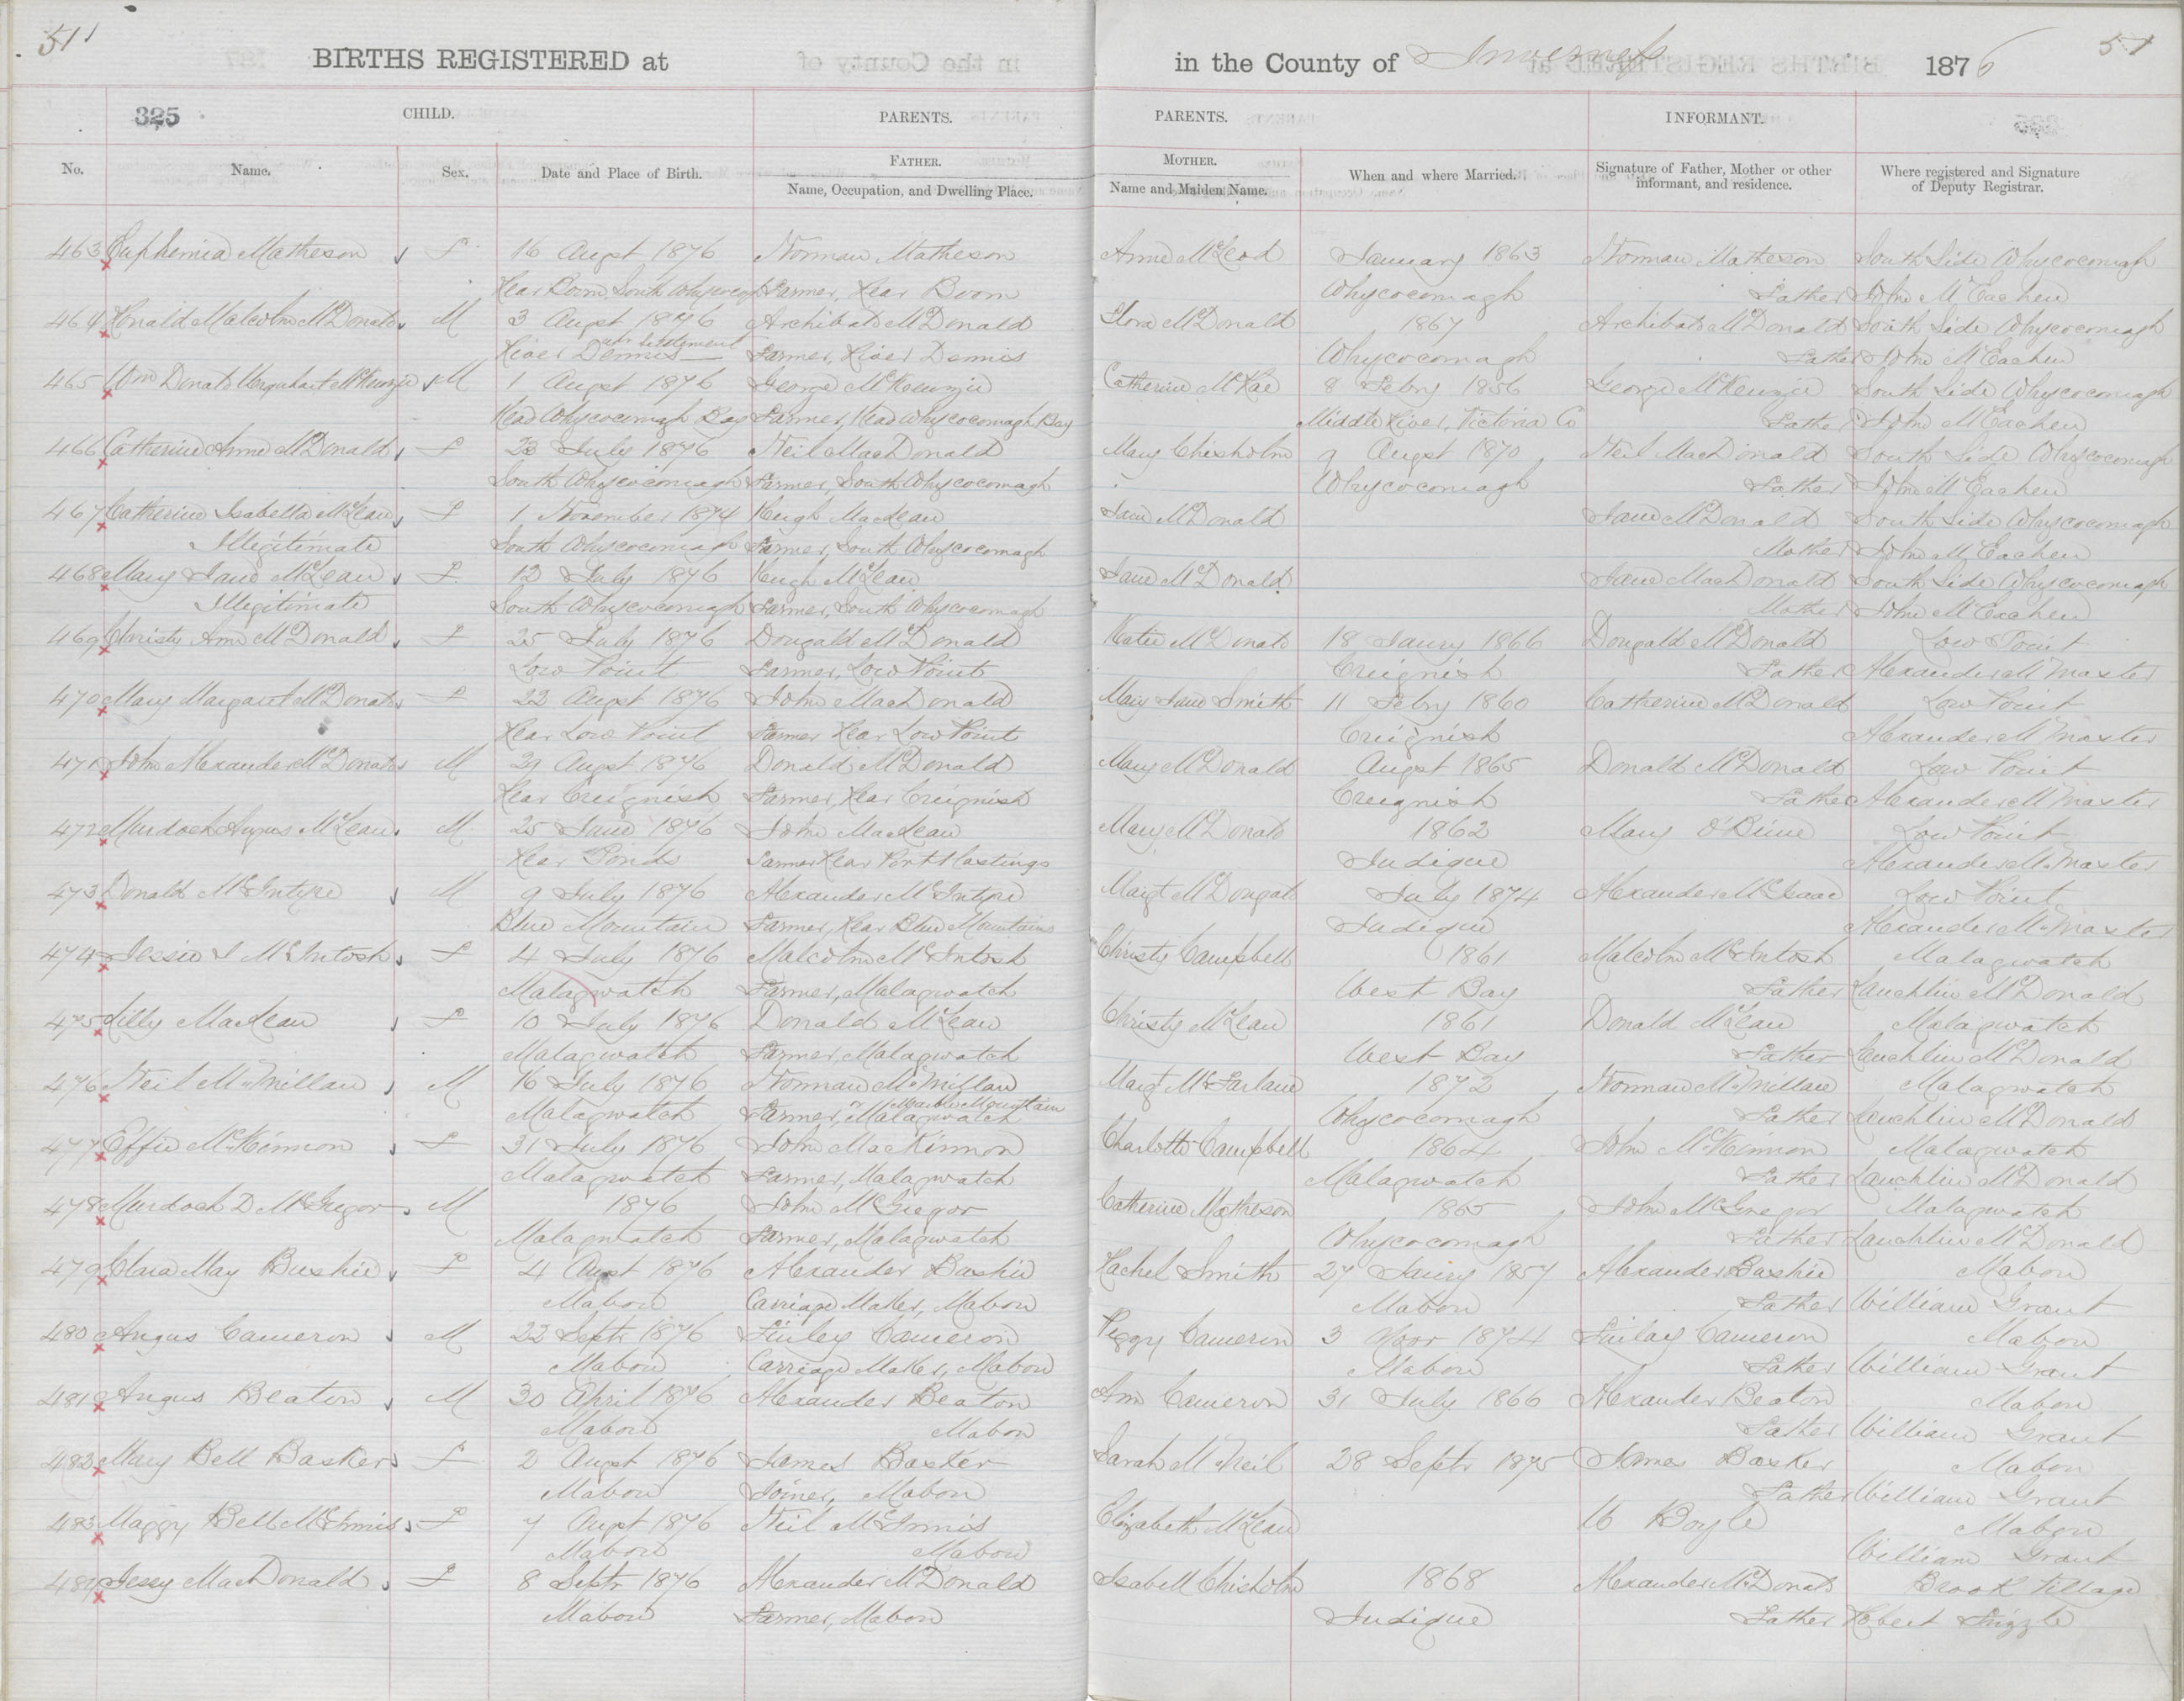 51
BIRTHS REGISTERED at
in the County of Inverness
1876
51
325
CHILD.
PARENTS.
PARENTS.
INFORMANT.
No.
Name.
Sex.
Date and Place of Birth.
FATHER.
Name, Occupation, and Dwelling Place.
MOTHER.
Name and Maiden Name.
When and where Married.
Signature of Father, Mother or other informant, and residence.
Where registered and Signature of Deputy Registrar.
463 Euphemia Matheson F 16 Augst 1876 Norman Matheson Anne McLeod January 1863 Norman Matheson South Side Whycocomagh
Rear Boom, South Whycocomagh Farmer, Rear Boom Whycocomagh Father John McEachen
464 Ronald Malcolm McDonald M 3 Augst 1876 Archibald McDonald Flora McDonald 1867 Archibald McDonald South Side Whycocomagh
River Dennis Farmer, River Dennis Whycocomagh Father John McEachen
465 Wm Donald Urquhart McKenzie M 1 Augst 1876 George McKenzie Catherine McRae 8 Febry 1856 George McKenzie South Side Whycocomagh
Head Whycocomagh Bay Farmer, Head Whycocomagh Bay Middle River, Victoria Co Father John McEachen
466 Catherine Anne McDonald F 23 July 1876 Neil MacDonald Mary Chisholm 9 Augst 1870 Neil MacDonald South Side Whycocomagh
South Whycocomagh Farmer, South Whycocomagh Whycocomagh Father John McEachen
467 Catherine Isabella McLean F 1 November 1874 Hugh MacLean Jane McDonald Jane McDonald South Side Whycocomagh
Illegitimate South Whycocomagh Farmer, South Whycocomagh Mother John McEachen
468 Mary Jane McLean F 12 July 1876 Hugh McLean Jane McDonald Jane MacDonald South Side Whycocomagh
Illegitimate South Whycocomagh Farmer, South Whycocomagh Mother John McEachen
469 Christy Ann McDonald F 25 July 1876 Dougald McDonald Katie McDonald 18 Janry 1866 Dougald McDonald Low Point
Low Point Farmer, Low Point Creignish Father Alexander McMaster
470 Mary Margaret McDonald F 22 Augst 1876 John MacDonald Mary Jane Smith 11 Febry 1860 Catherine McDonald Low Point
Rear Low Point Farmer Rear Low Point Creignish Alexander McMaster
471 John Alexander McDonald M 29 Augst 1876 Donald McDonald Mary McDonald Augst 1865 Donald McDonald Low Point
Rear Creignish Farmer, Rear Creignish Creignish Father Alexander McMaster
472 Murdoch Angus McLean M 25 June 1876 John MacLean Mary McDonald 1862 Mary Low Point
Rear Ponds Farmer Rear Port Hastings Judique Alexander McMaster
473 Donald McIntyre M 9 July 1876 Alexander McIntyre Margt McDougald July 1874 Alexander McIsaac Low Point
Blue Mountain Farmer, Rear Blue Mountains Judique Alexander McMaster
474 Jessie J McIntosh F 4 July 1876 Malcolm McIntosh Christy Campbell 1861 Malcolm McIntosh Malagwatch
Malagwatch Farmer, Malagwatch West Bay Father Lauchlin McDonald
475 Lilly MacLean F 10 July 1876 Donald McLean Christy McLean 1861 Donald McLean Malagwatch
Malagwatch Farmer, Malagwatch West Bay Father Lauchlin McDonald
476 Neil McMillan M 16 July 1876 Norman McMillan Margt McFarlane 1872 Norman McMillan Malagwatch
Malagwatch Farmer, Malagwatch or Marble Mountain Whycocomagh Father Lauchlin McDonald
477 Effie McKinnon F 31 July 1876 John MacKinnon Charlotte Campbell 1864 John McKinnon Malagwatch
Malagwatch Farmer, Malagwatch Malagwatch Father Lauchlin McDonald
478 Murdoch D McGregor M 1876 John McGregor Catherine Matheson 1865 John McGregor Malagwatch
Malagwatch Farmer, Malagwatch Whycocomagh Father Lauchlin McDonald
479 Clara May Buskie F 4 Augst 1876 Alexander Baskie Rachel Smith 27 Janry 1857 Alexander Baskie Mabou
Mabou Carriage Maker, Mabou Mabou Father William Grant
480 Angus Cameron M 22 Septr 1876 Finley Cameron Peggy Cameron 3 Novr 1874 Finlay Cameron Mabou
Mabou Carriage Maker, Mabou Mabou Father William Grant
481 Angus Beaton M 30 April 1876 Alexander Beaton Ann Cameron 31 July 1866 Alexander Beaton Mabou
Mabou Mabou Father William Grant
482 Mary Bell Basker F 2 Augst 1876 James Baxter Sarah McNeil 28 Septr 1875 James Basker Mabou
Mabou Joiner, Mabou Father William Grant
483 Maggy Bell McInnis F 7 Augst 1876 Neil McInnis Elizabeth McLean Boyle Mabou
Mabou Mabou William Grant
484 Jessy MacDonald F 8 Septr 1876 Alexander McDonald Isabell Chisholm 1868 Alexander McDonald Brook Village
Mabou Farmer, Mabou Judique Father Robert Frizzle